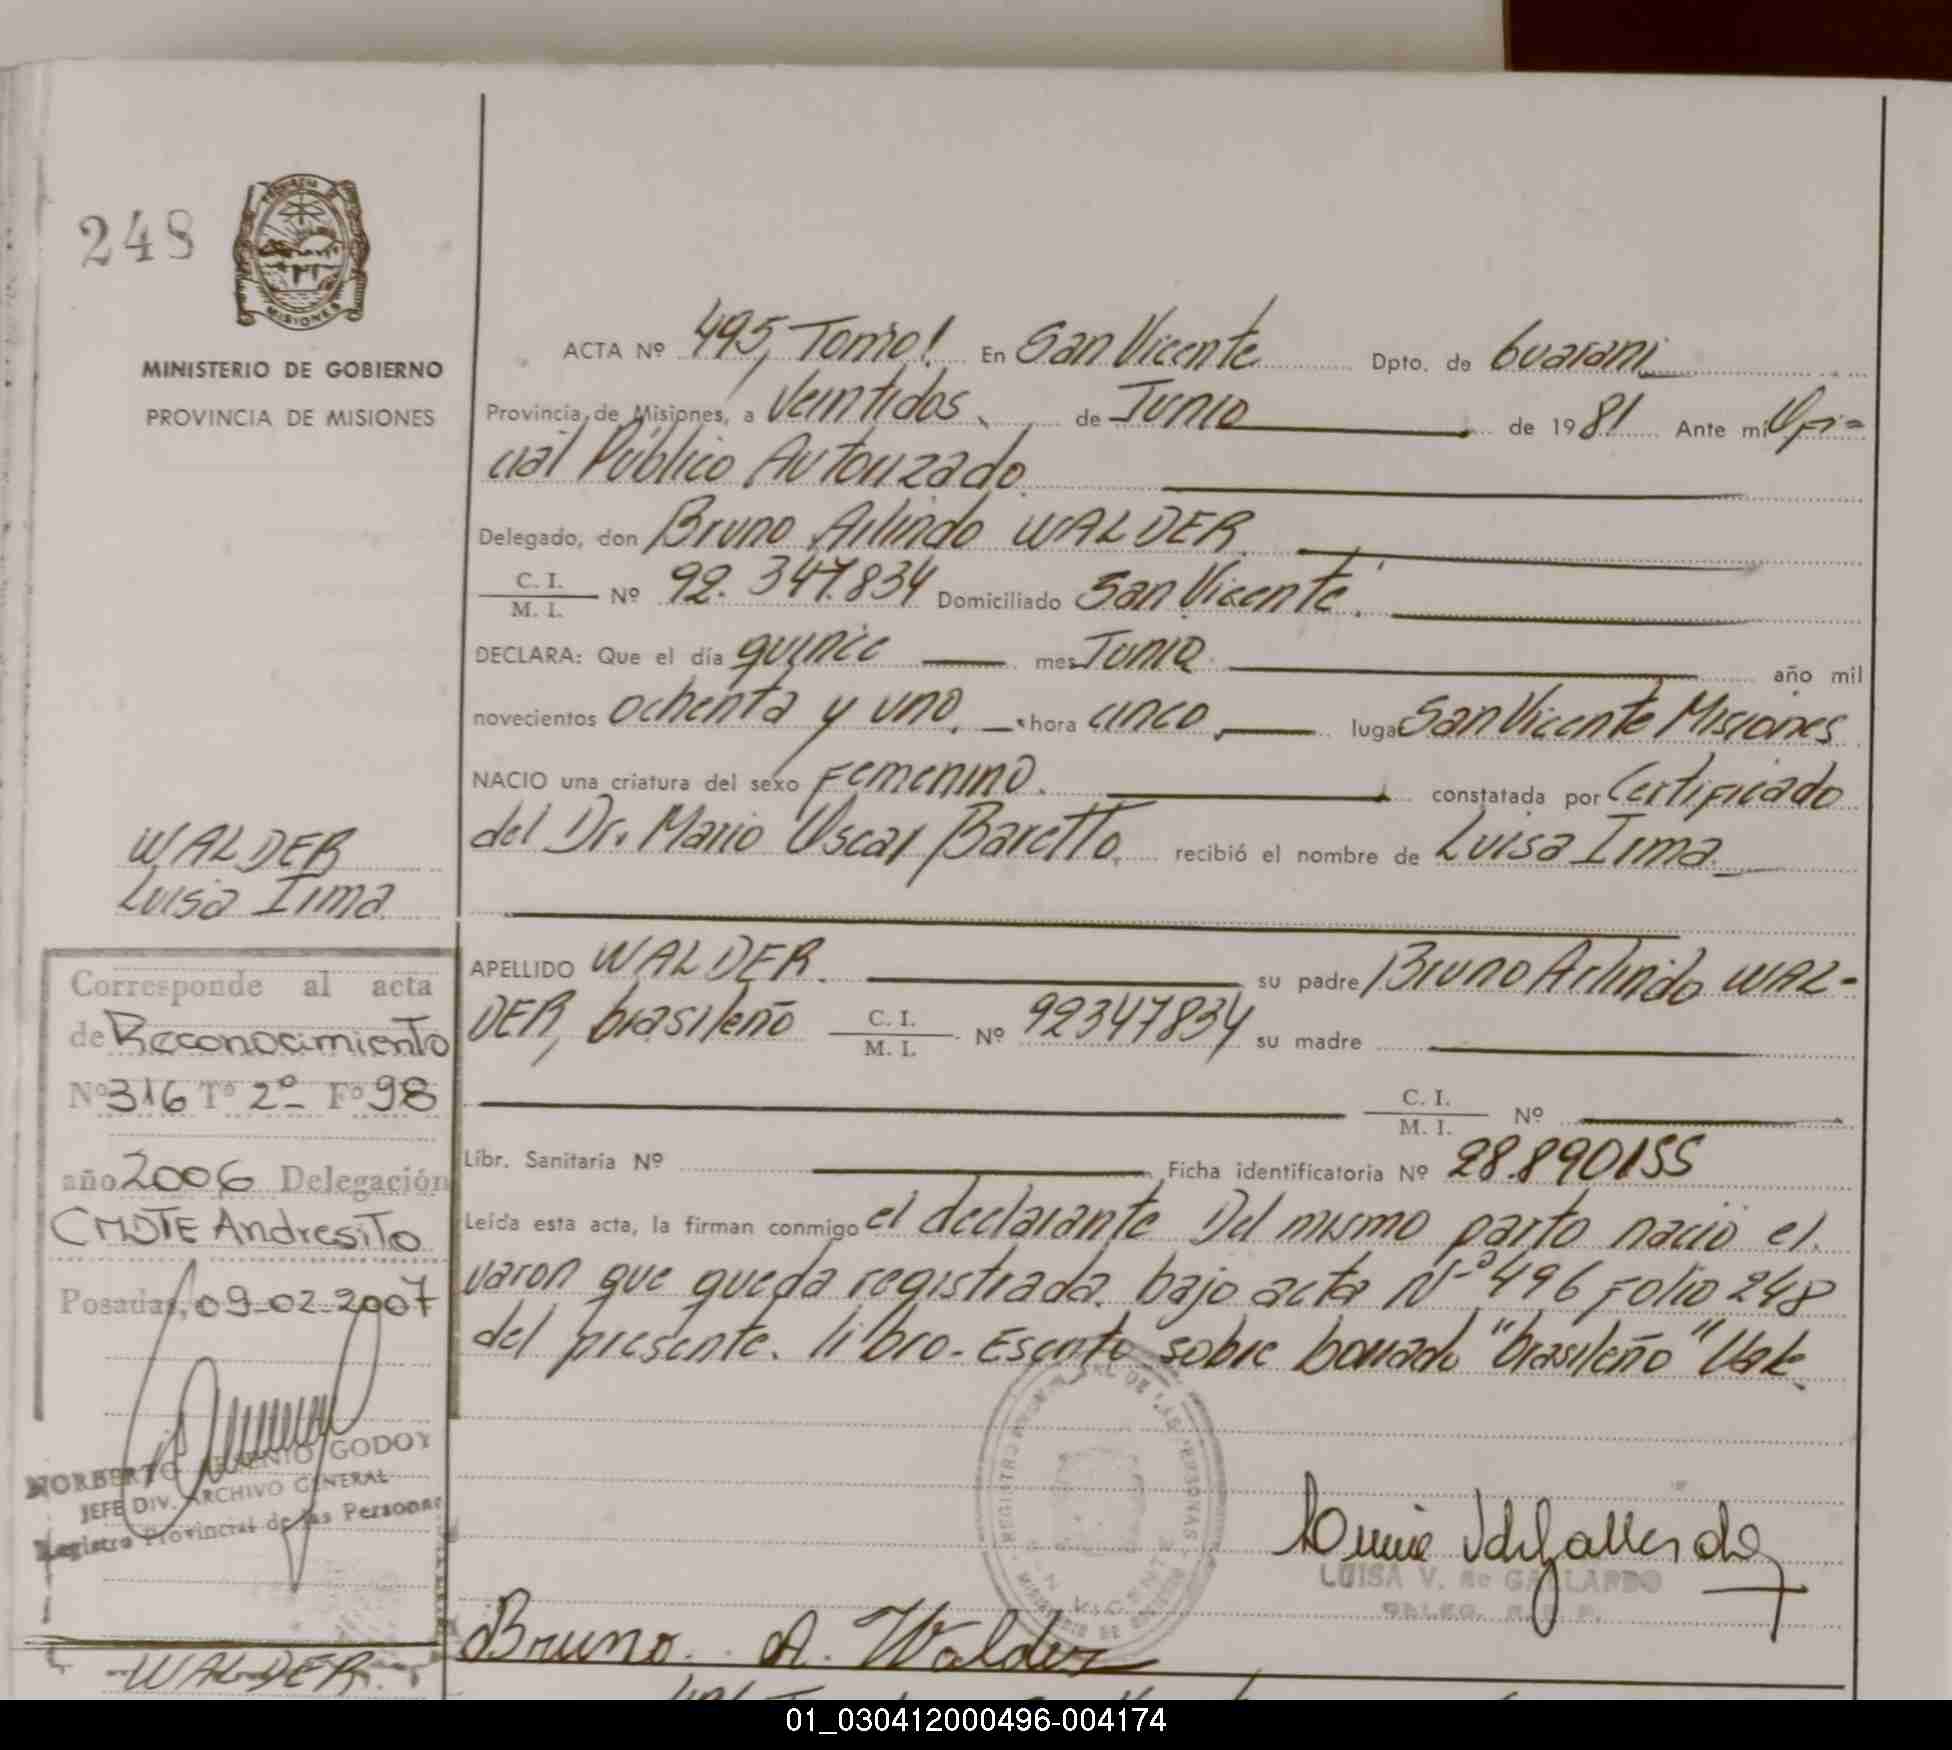 248
PROVINCIA DE
MISIONES
MINISTERIO DE GOBIERNO
PROVINCIA DE MISIONES
ACTA Nº 495, Tomo 1 En San Vicente Dpto. de Guarani
Provincia de Misiones, a Veintidos de Junio de 1981 Ante mi Ofi=
cial Público Autorizado
Delegado, don Bruno Arlindo WALDER
C. I. / M. I. Nº 92.347.834 Domiciliado San Vicente.
DECLARA: Que el día quince mes Junio año mil
novecientos ochenta y uno. hora cinco, lugar San Vicente Misiones
NACIO una criatura del sexo Femenino. constatada por Certificado
del Dr. Mario Oscar Baretto, recibió el nombre de Luisa Irma
WALDER
Luisa Irma
APELLIDO WALDER. su padre Bruno Arlindo WAL-
DER, brasileño C. I. / M. I. Nº 92347834 su madre
C. I. / M. I. Nº
Libr. Sanitaria Nº Ficha identificatoria Nº 28.890155
Leída esta acta, la firman conmigo el declarante Del mismo parto nació el
varon que queda registrada bajo acta Nº 496 Folio 248
del presente libro.- Escrito sobre borrado "brasileño" Vale
Corresponde al acta
de Reconocimiento
Nº 316 Tº 2º Fº 98
año 2006 Delegación
CMDTE Andresito
Posadas, 09-02-2007
NORBERTO ARSENIO GODOY
JEFE DIV. ARCHIVO GENERAL
Registro Provincial de las Personas
REGISTRO PROVINCIAL DE LAS PERSONAS
SAN VICENTE
MINISTERIO DE GOBIERNO
LUISA V. de GALLARDO
Bruno. A. Walder
WALDER.
01_030412000496-004174